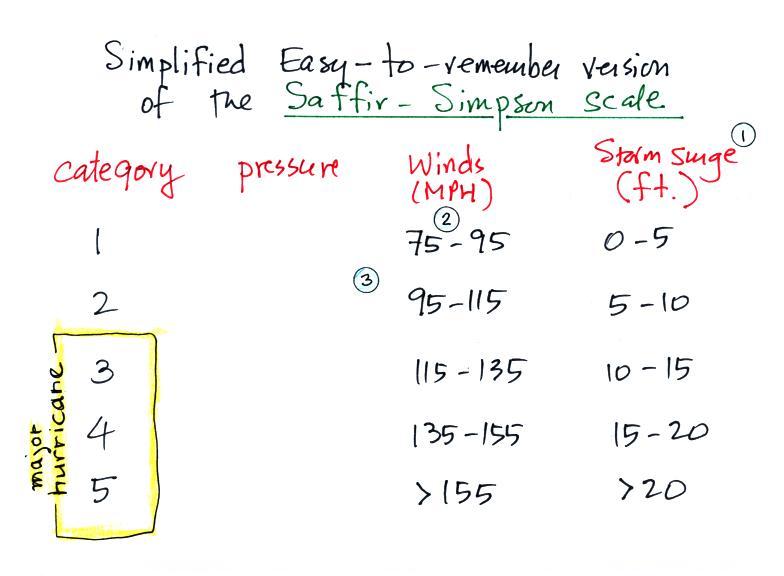 Simplified Easy-to-remember version
of the Saffir-Simpson scale
category pressure Winds (MPH) Storm surge (ft.) 1
1 75-95 2 0-5
3
2 95-115 5-10
3 115-135 10-15
4 135-155 15-20
5 >155 >20
major
hurricane